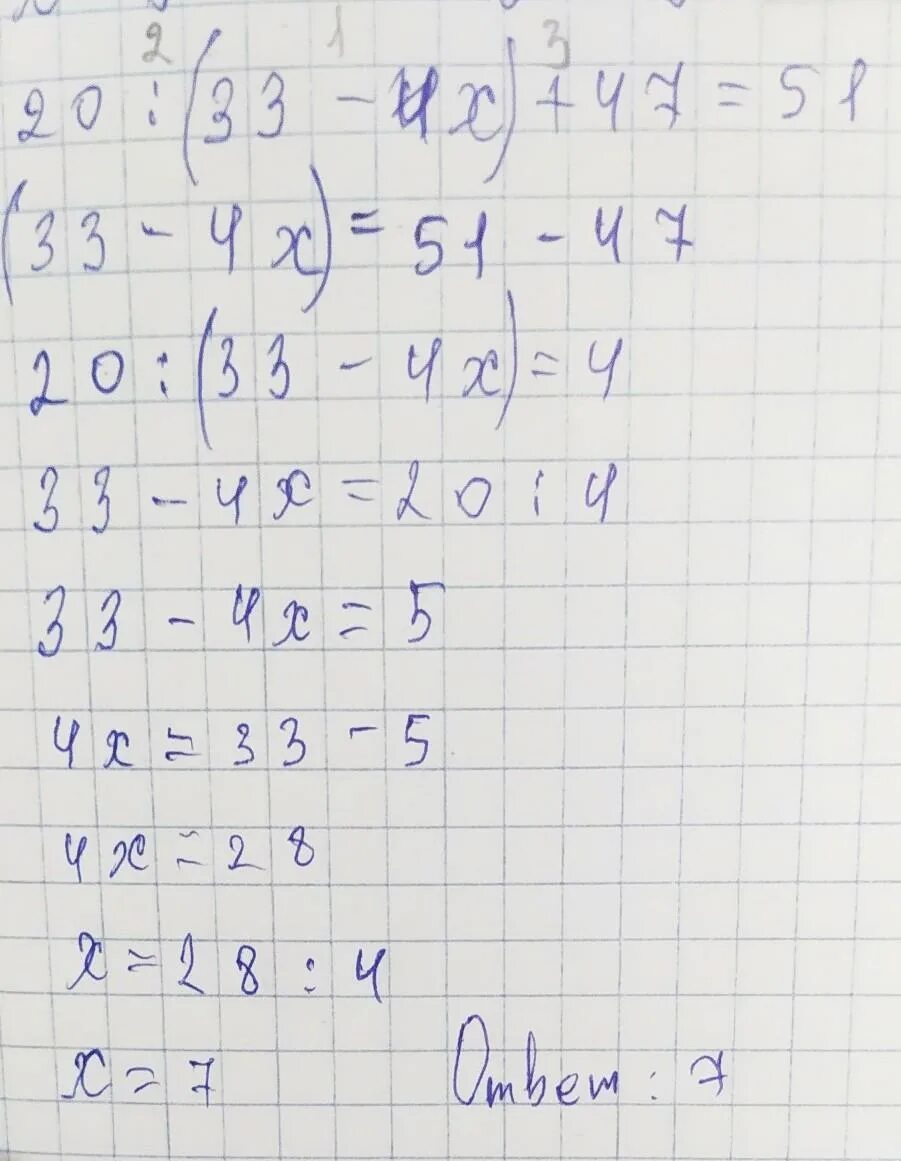 2 1 3
20 : (33 - 4x) + 47 = 51
(33 - 4x) = 51 - 47
20 : (33 - 4x) = 4
33 - 4x = 20 : 4
33 - 4x = 5
4x = 33 - 5
4x = 28
x = 28 : 4
x = 7 Ответ : 7